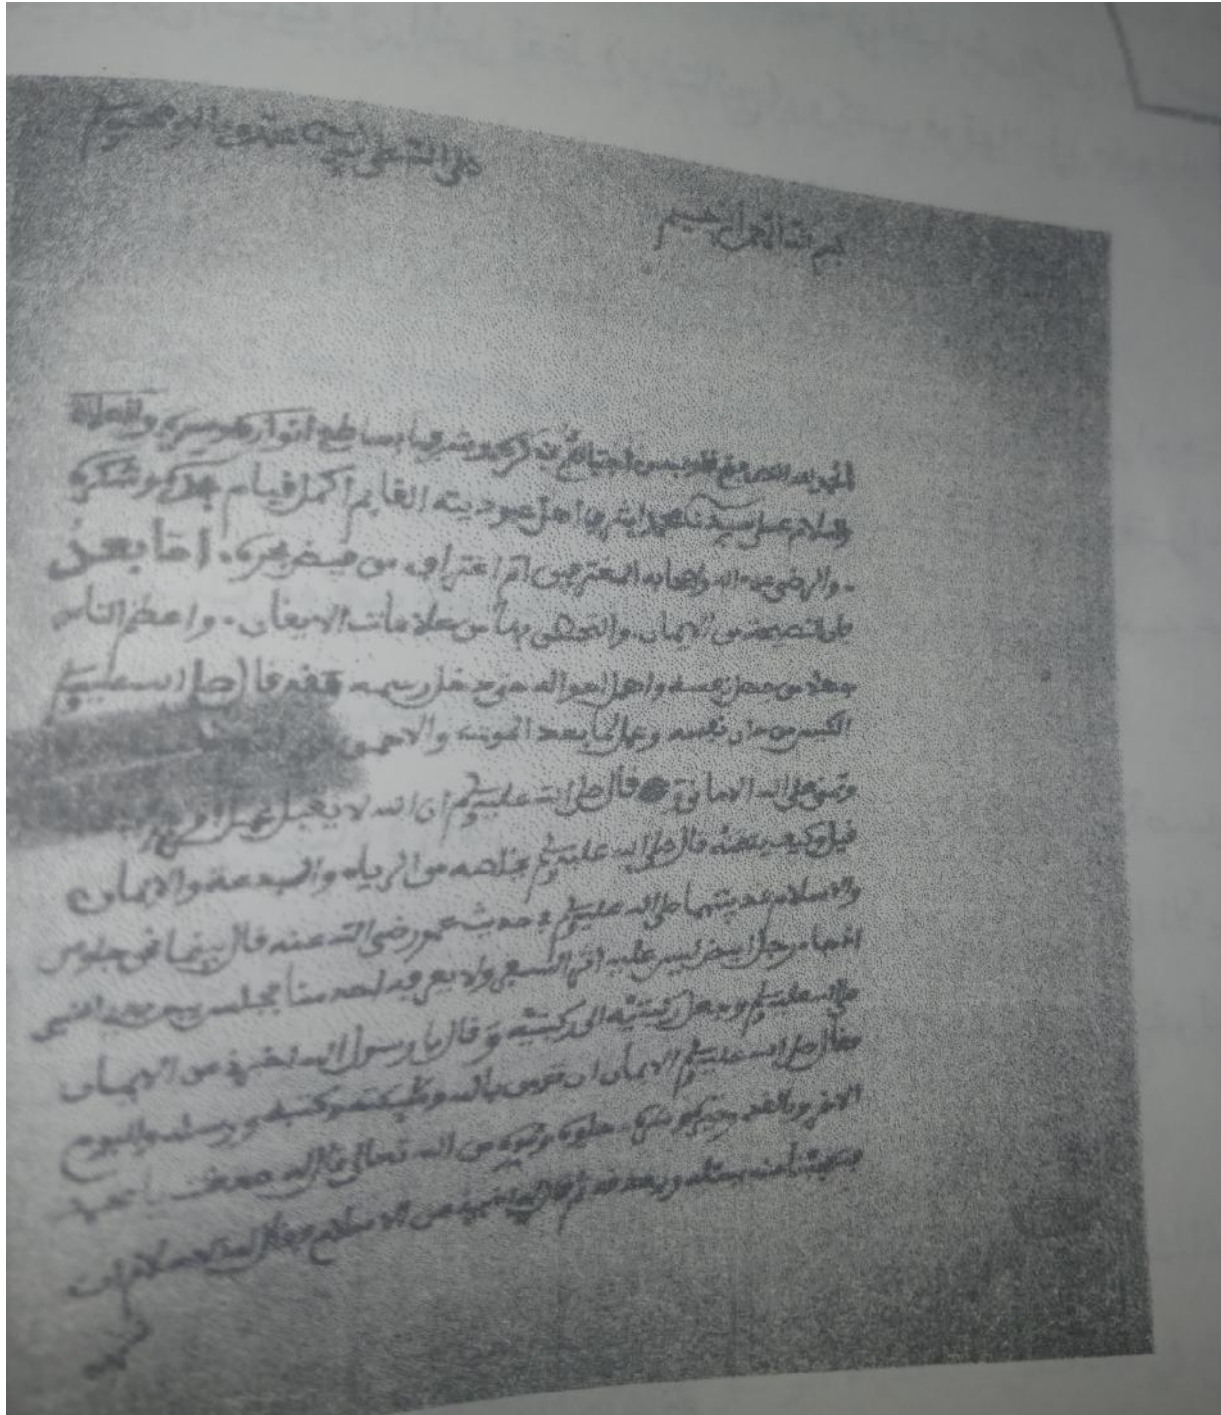 صلى الله على سيدنا محمد وآله وصحبه وسلم
بسم الله الرحمن الرحيم
الحمد لله قلوب بساطع انوار والصلاة
والسلام على سيدنا محمد اهل عبوديته القايم اكمل قيام بحمده وشكره
والرضى عن اله واصحابه المغترفين اتم اغتراف من فيض بحره. اما بعد
النصيحة من الايمان والتحلى بها من علامات الايقان. واعظم الناس
من جهل نفسه فقد قال صلى الله عليه وسلم
الكيس من دان نفسه وعمل لما بعد الموت والاحمق
وتمنى على الله الامانى قال صلى الله عليه وسلم ان الله لا يقبل عمل امرئ
قيل وكيف يتقنه قال صلى الله عليه وسلم يخلصه من الرياء والبدعة والايمان
والاسلام صلى الله عليه وسلم فى حديث عمر رضى الله عنه قال بينما نحن جلوس
اذ جاء رجل ليس عليه اثر السفر ولا يعرفه احد منا فجلس بين يدى النبى
صلى الله عليه وسلم وجعل ركبتيه الى ركبتيه وقال يا رسول الله اخبرنى عن الايمان
فقال صلى الله عليه وسلم الايمان ان تومن بالله وملئكته وكتبه ورسله واليوم
الاخر وبالقدر خيره وشره حلوه ومره من الله تعالى قال صدقت يا محمد
فتعجبنا منه يسئله ويصدقه ثم قال اخبرنى عن الاسلام فقال له الاسلام ان